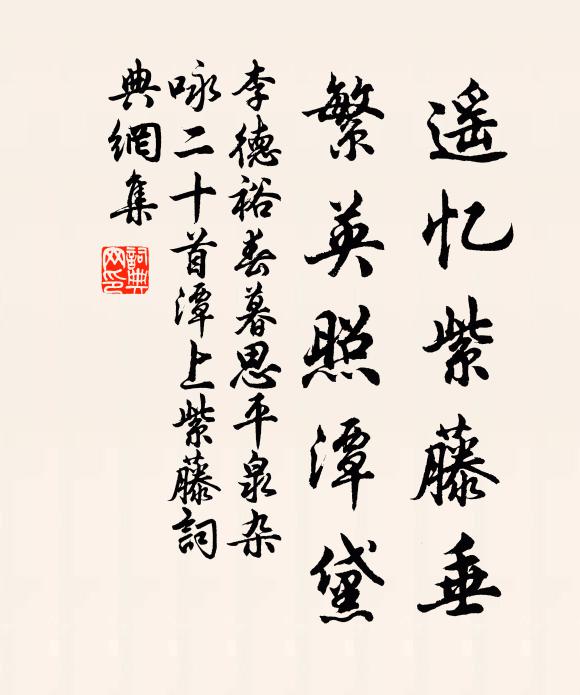 遥忆紫藤垂
繁英照潭黛
李德裕春暮思平泉杂
咏二十首潭上紫藤詞
典網集
詞典網印